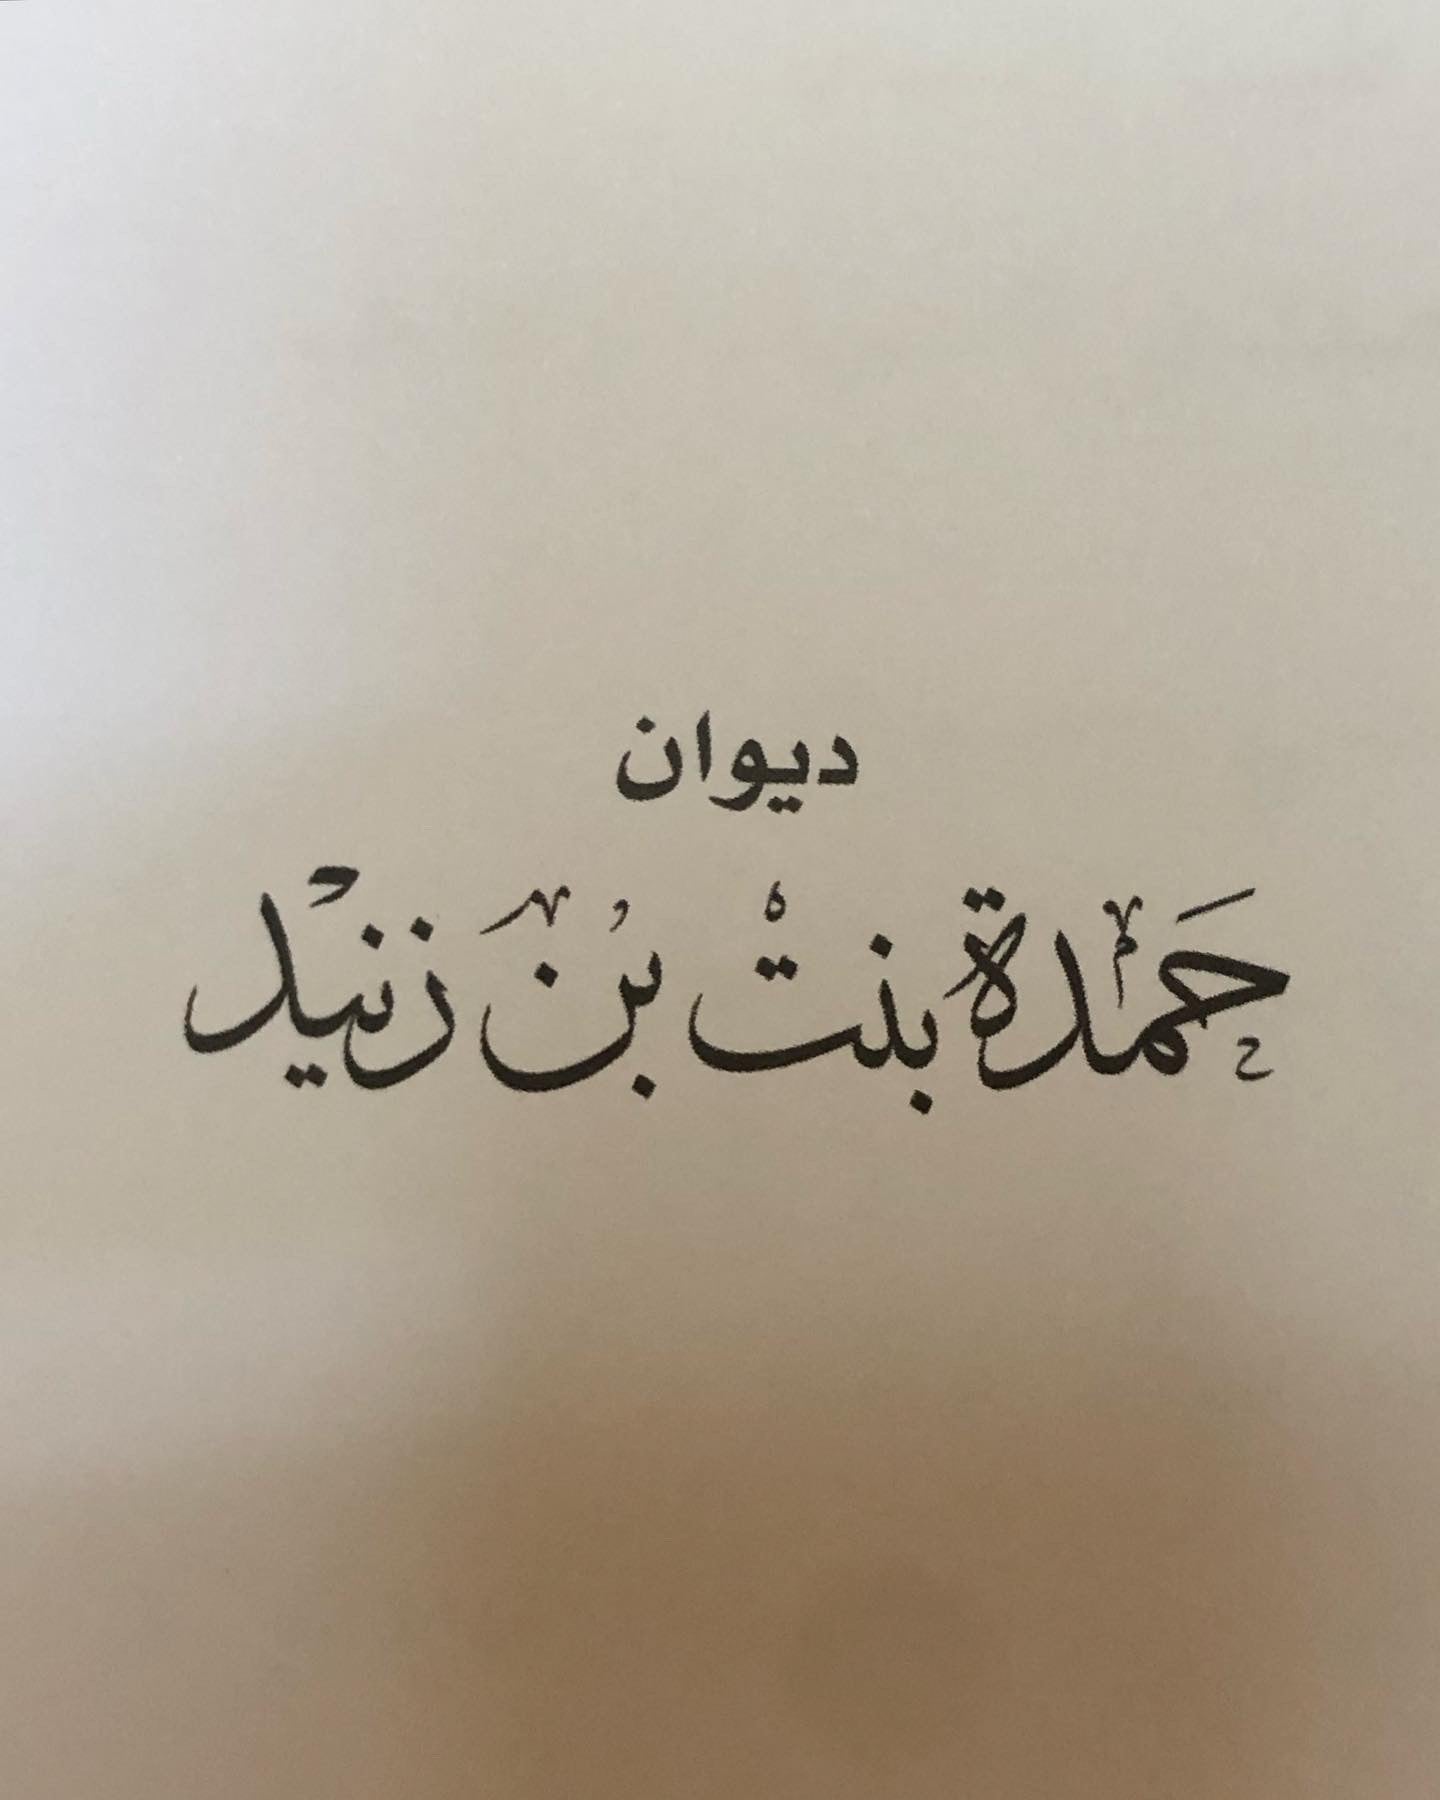 ديوان
حَمْدة بنتْ بن زنَيْد